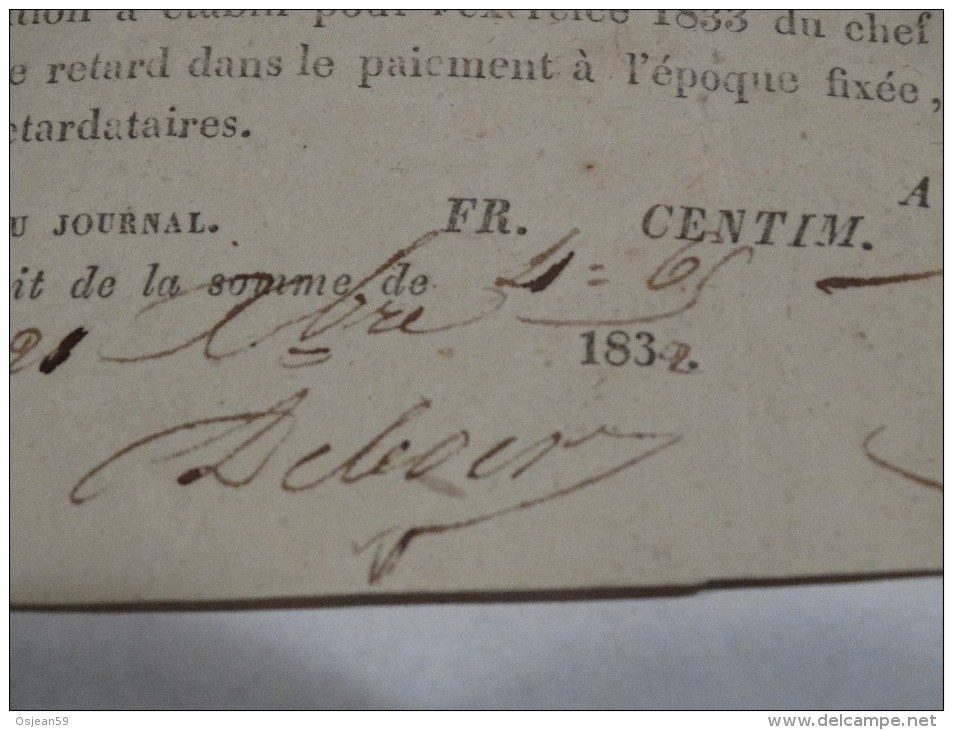 à établir pour l'exercice 1833 du chef
e retard dans le paiement à l'époque fixée,
etardataires.
A
U JOURNAL. FR. CENTIM.
it de la somme de 4 = 65
21 Xbre 1832.
Deboer
Osjean59 www.delcampe.net